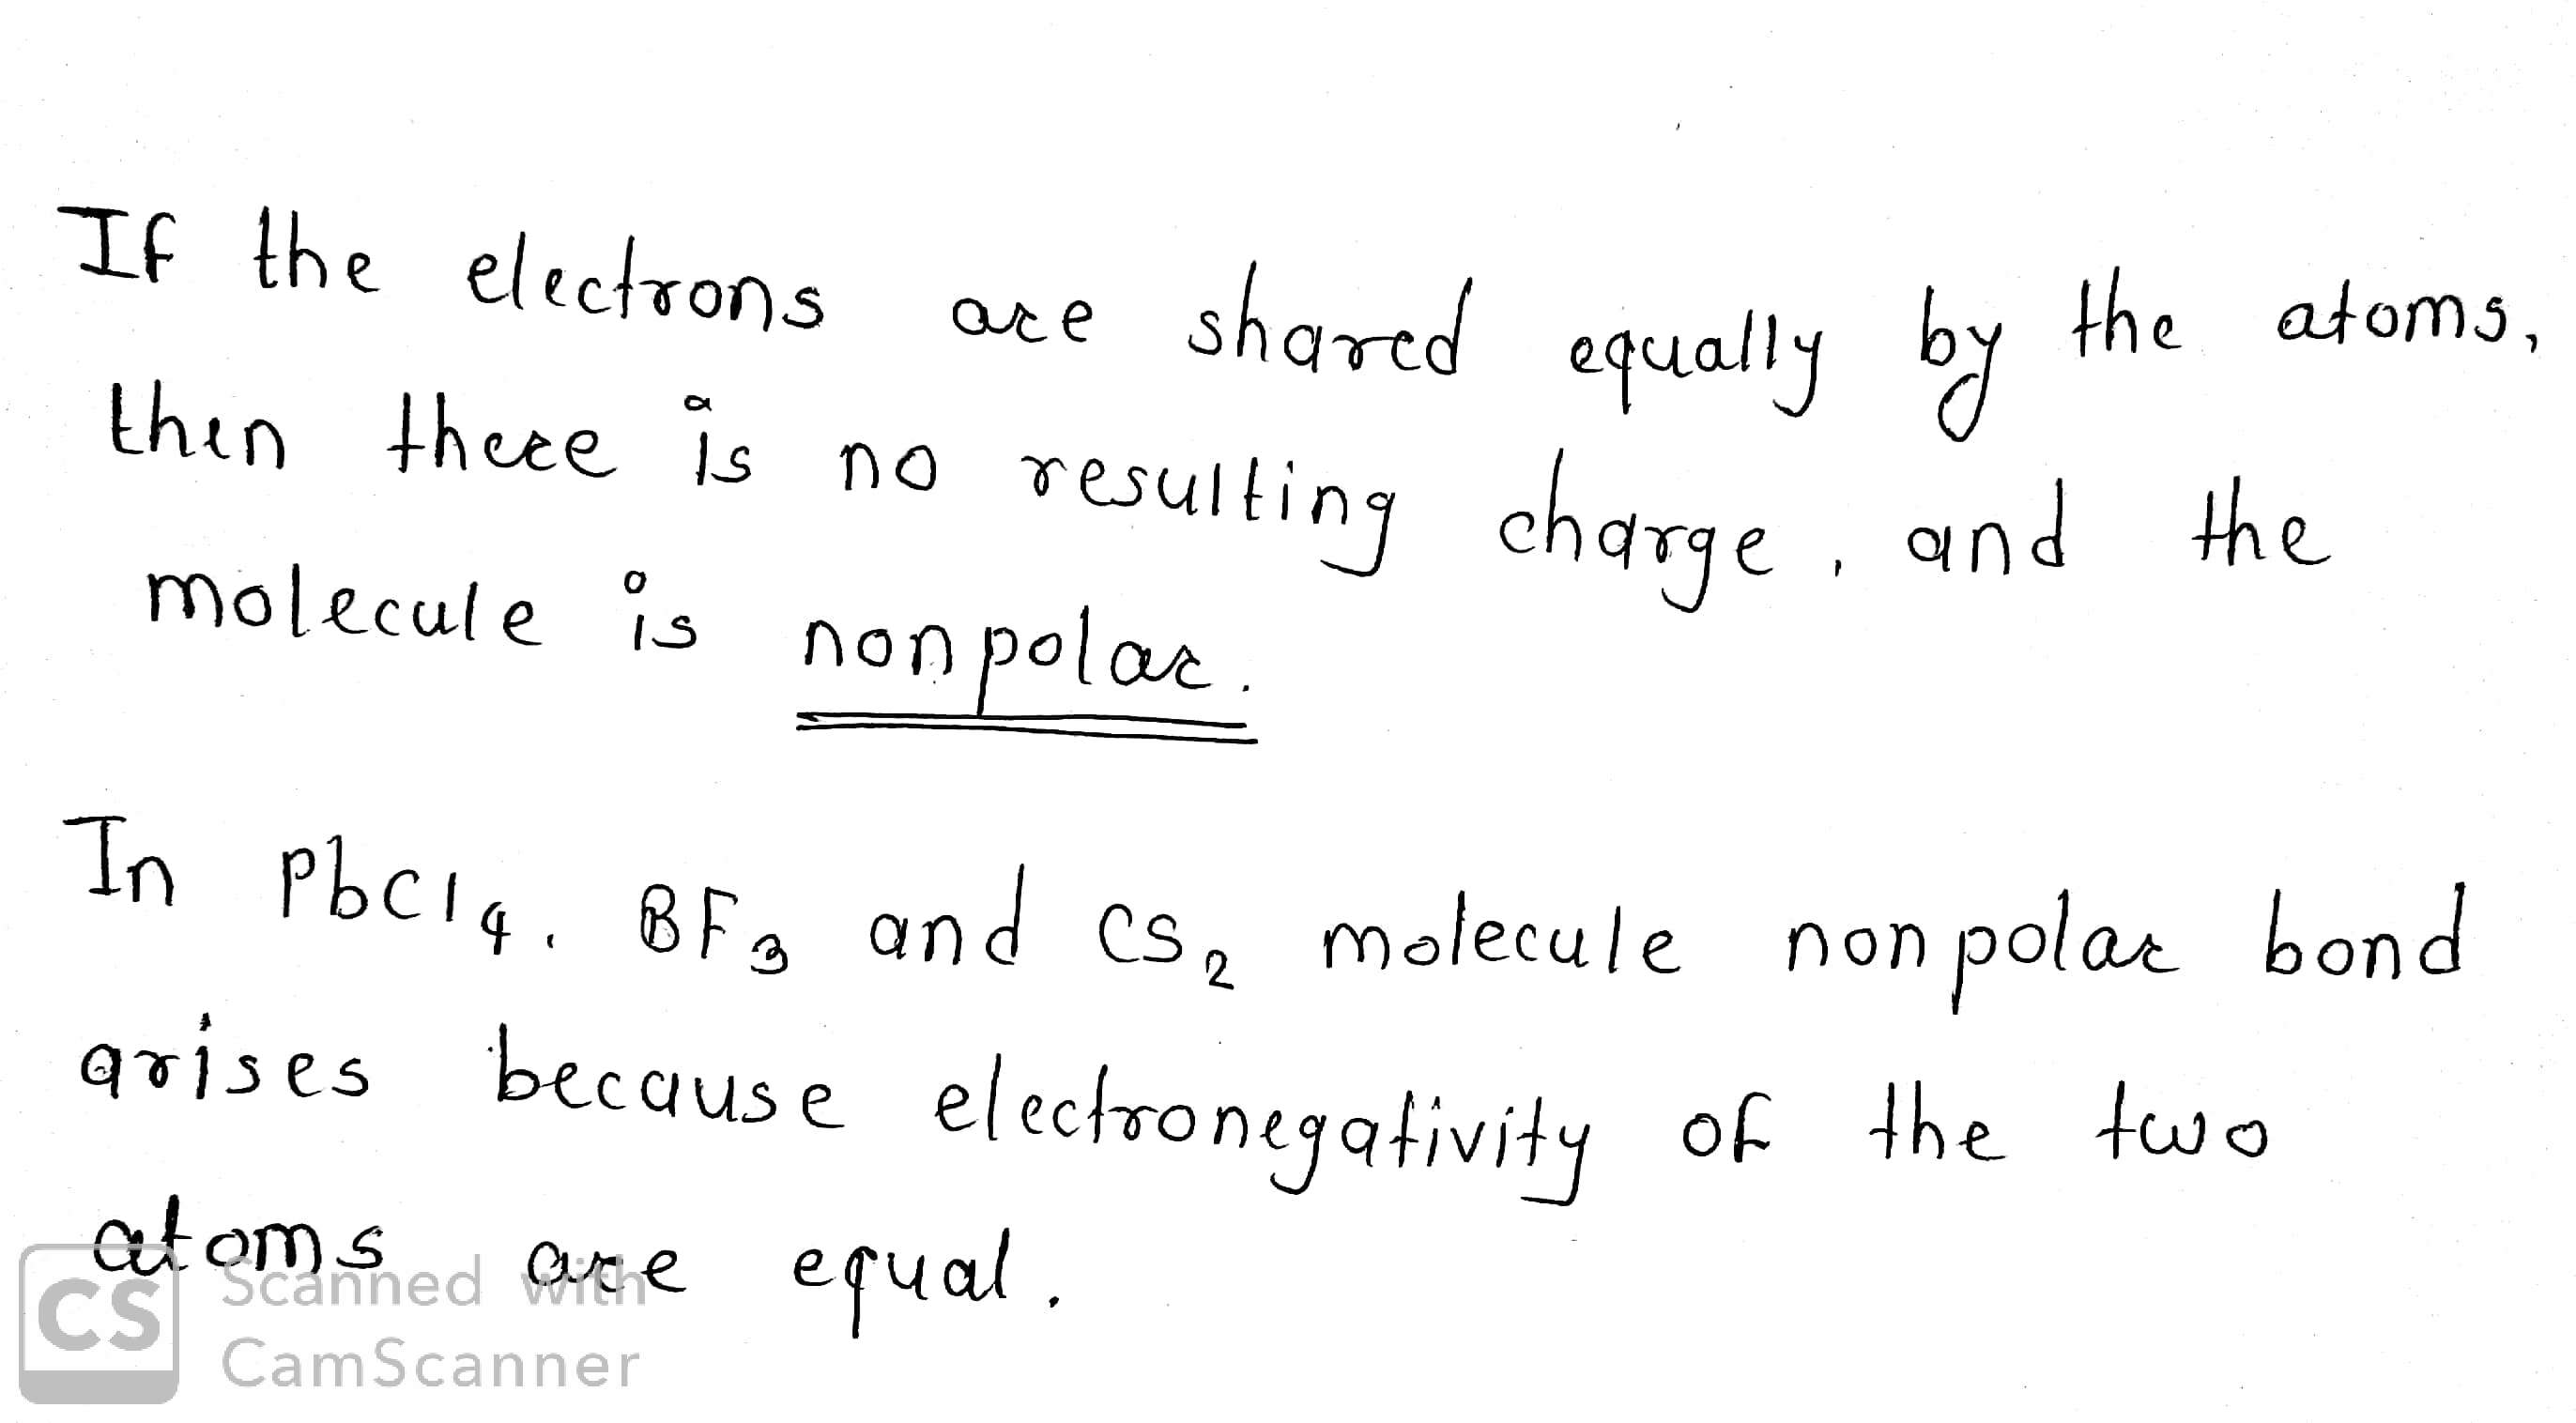 If the electrons are shared equally by the atoms,
then there is no resulting charge, and the
molecule is nonpolar.
In PbCl4, BF3 and CS2 molecule nonpolar bond
arises because electronegativity of the two
atoms are equal.
CS Scanned with
CamScanner